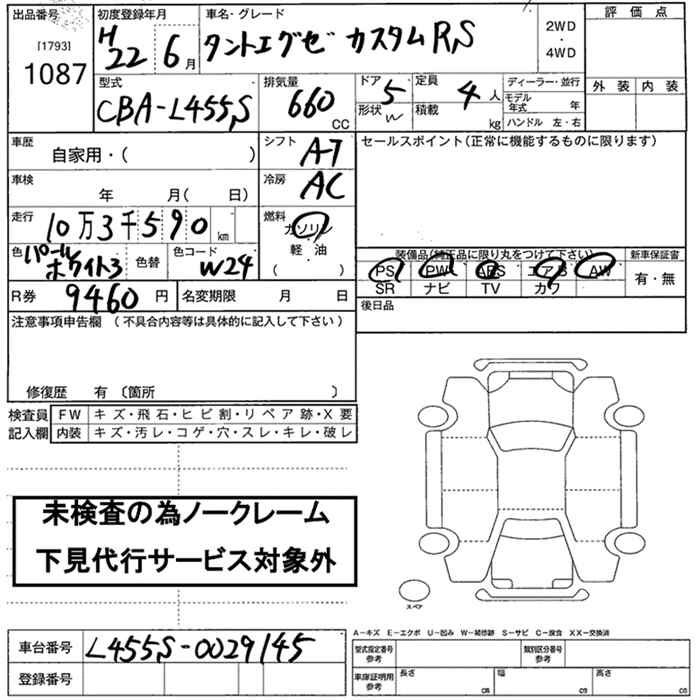 出品番号 [1793] 1087
初度登録年月 H22 6月
車名・グレード タントエグゼ カスタムRS
2WD・4WD
評価点
外装 内装
型式 CBA-L455S
排気量 660 CC
ドア 5 形状 W
定員 4 人 積載 kg
ディーラー・並行
モデル年式 年
ハンドル 左・右
車歴 自家用・( )
シフト A-T
セールスポイント(正常に機能するものに限ります)
車検 年 月( 日)
冷房 AC
走行 10万3千590 km
燃料 ガソリン 軽・油 ( )
色 パールホワイト3 色替
色コード W24
装備品(純正品に限り丸をつけて下さい)
PS PW ABS エアB AW
SR ナビ TV カワ
新車保証書 有・無
R券 9460 円
名変期限 月 日
後日品
注意事項申告欄 (不具合内容等は具体的に記入して下さい)
修復歴 有 〔箇所 〕
検査員記入欄
FW キズ・飛石・ヒビ割・リペア跡・X要
内装 キズ・汚レ・コゲ・穴・スレ・キレ・破レ
未検査の為ノークレーム
下見代行サービス対象外
スペア
A-キズ E-エクボ U-凹み W-補修跡 S-サビ C-腐食 XX-交換済
車台番号 L455S-0029145
登録番号
型式指定番号 参考
類別区分番号 参考
車庫証明用 参考
長さ cm 幅 cm 高さ cm